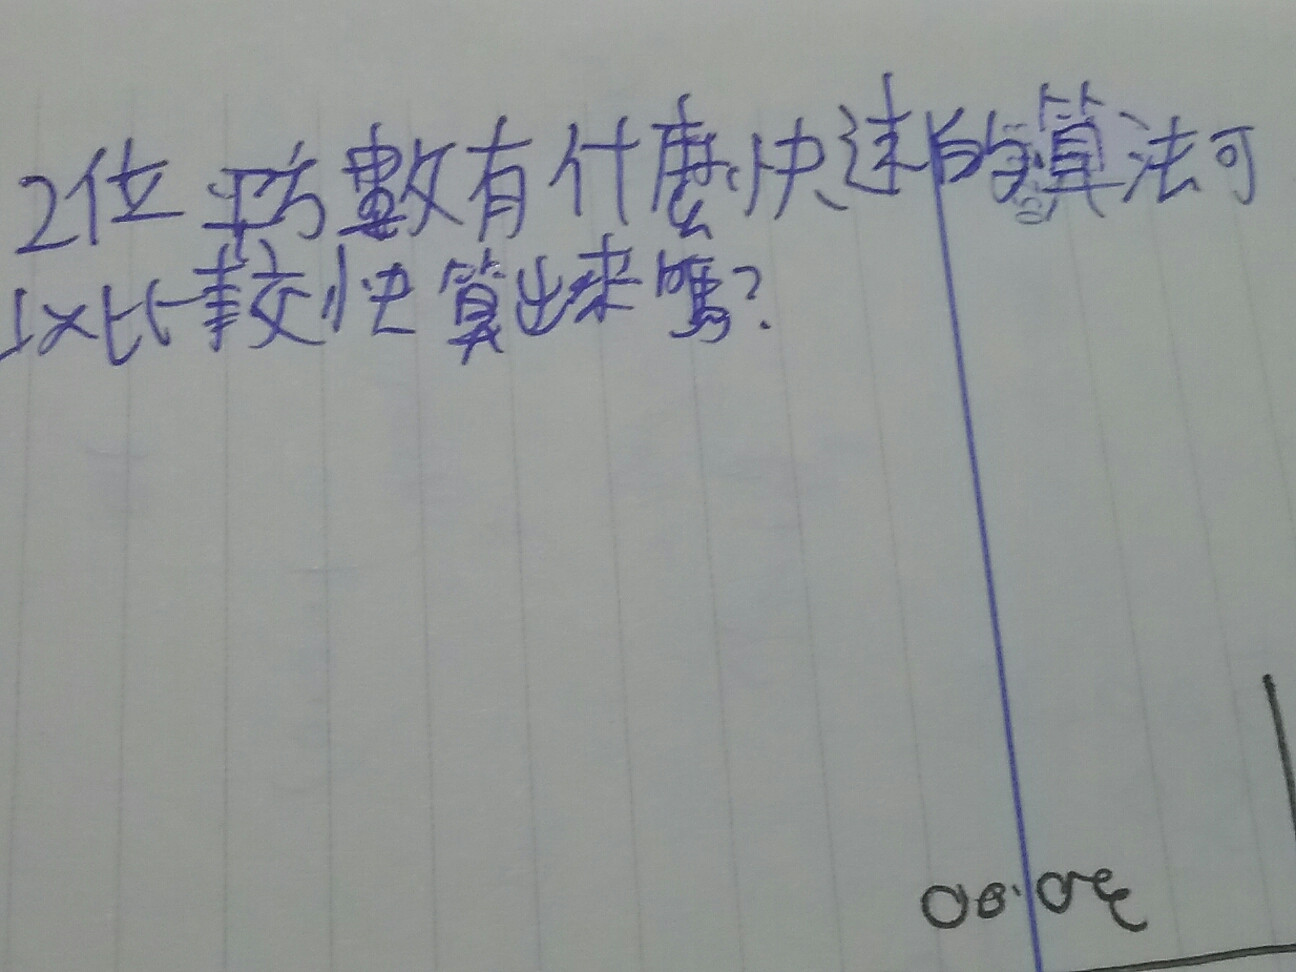 2位平方數有什麼快速的算法可
以比較快算出來嗎?